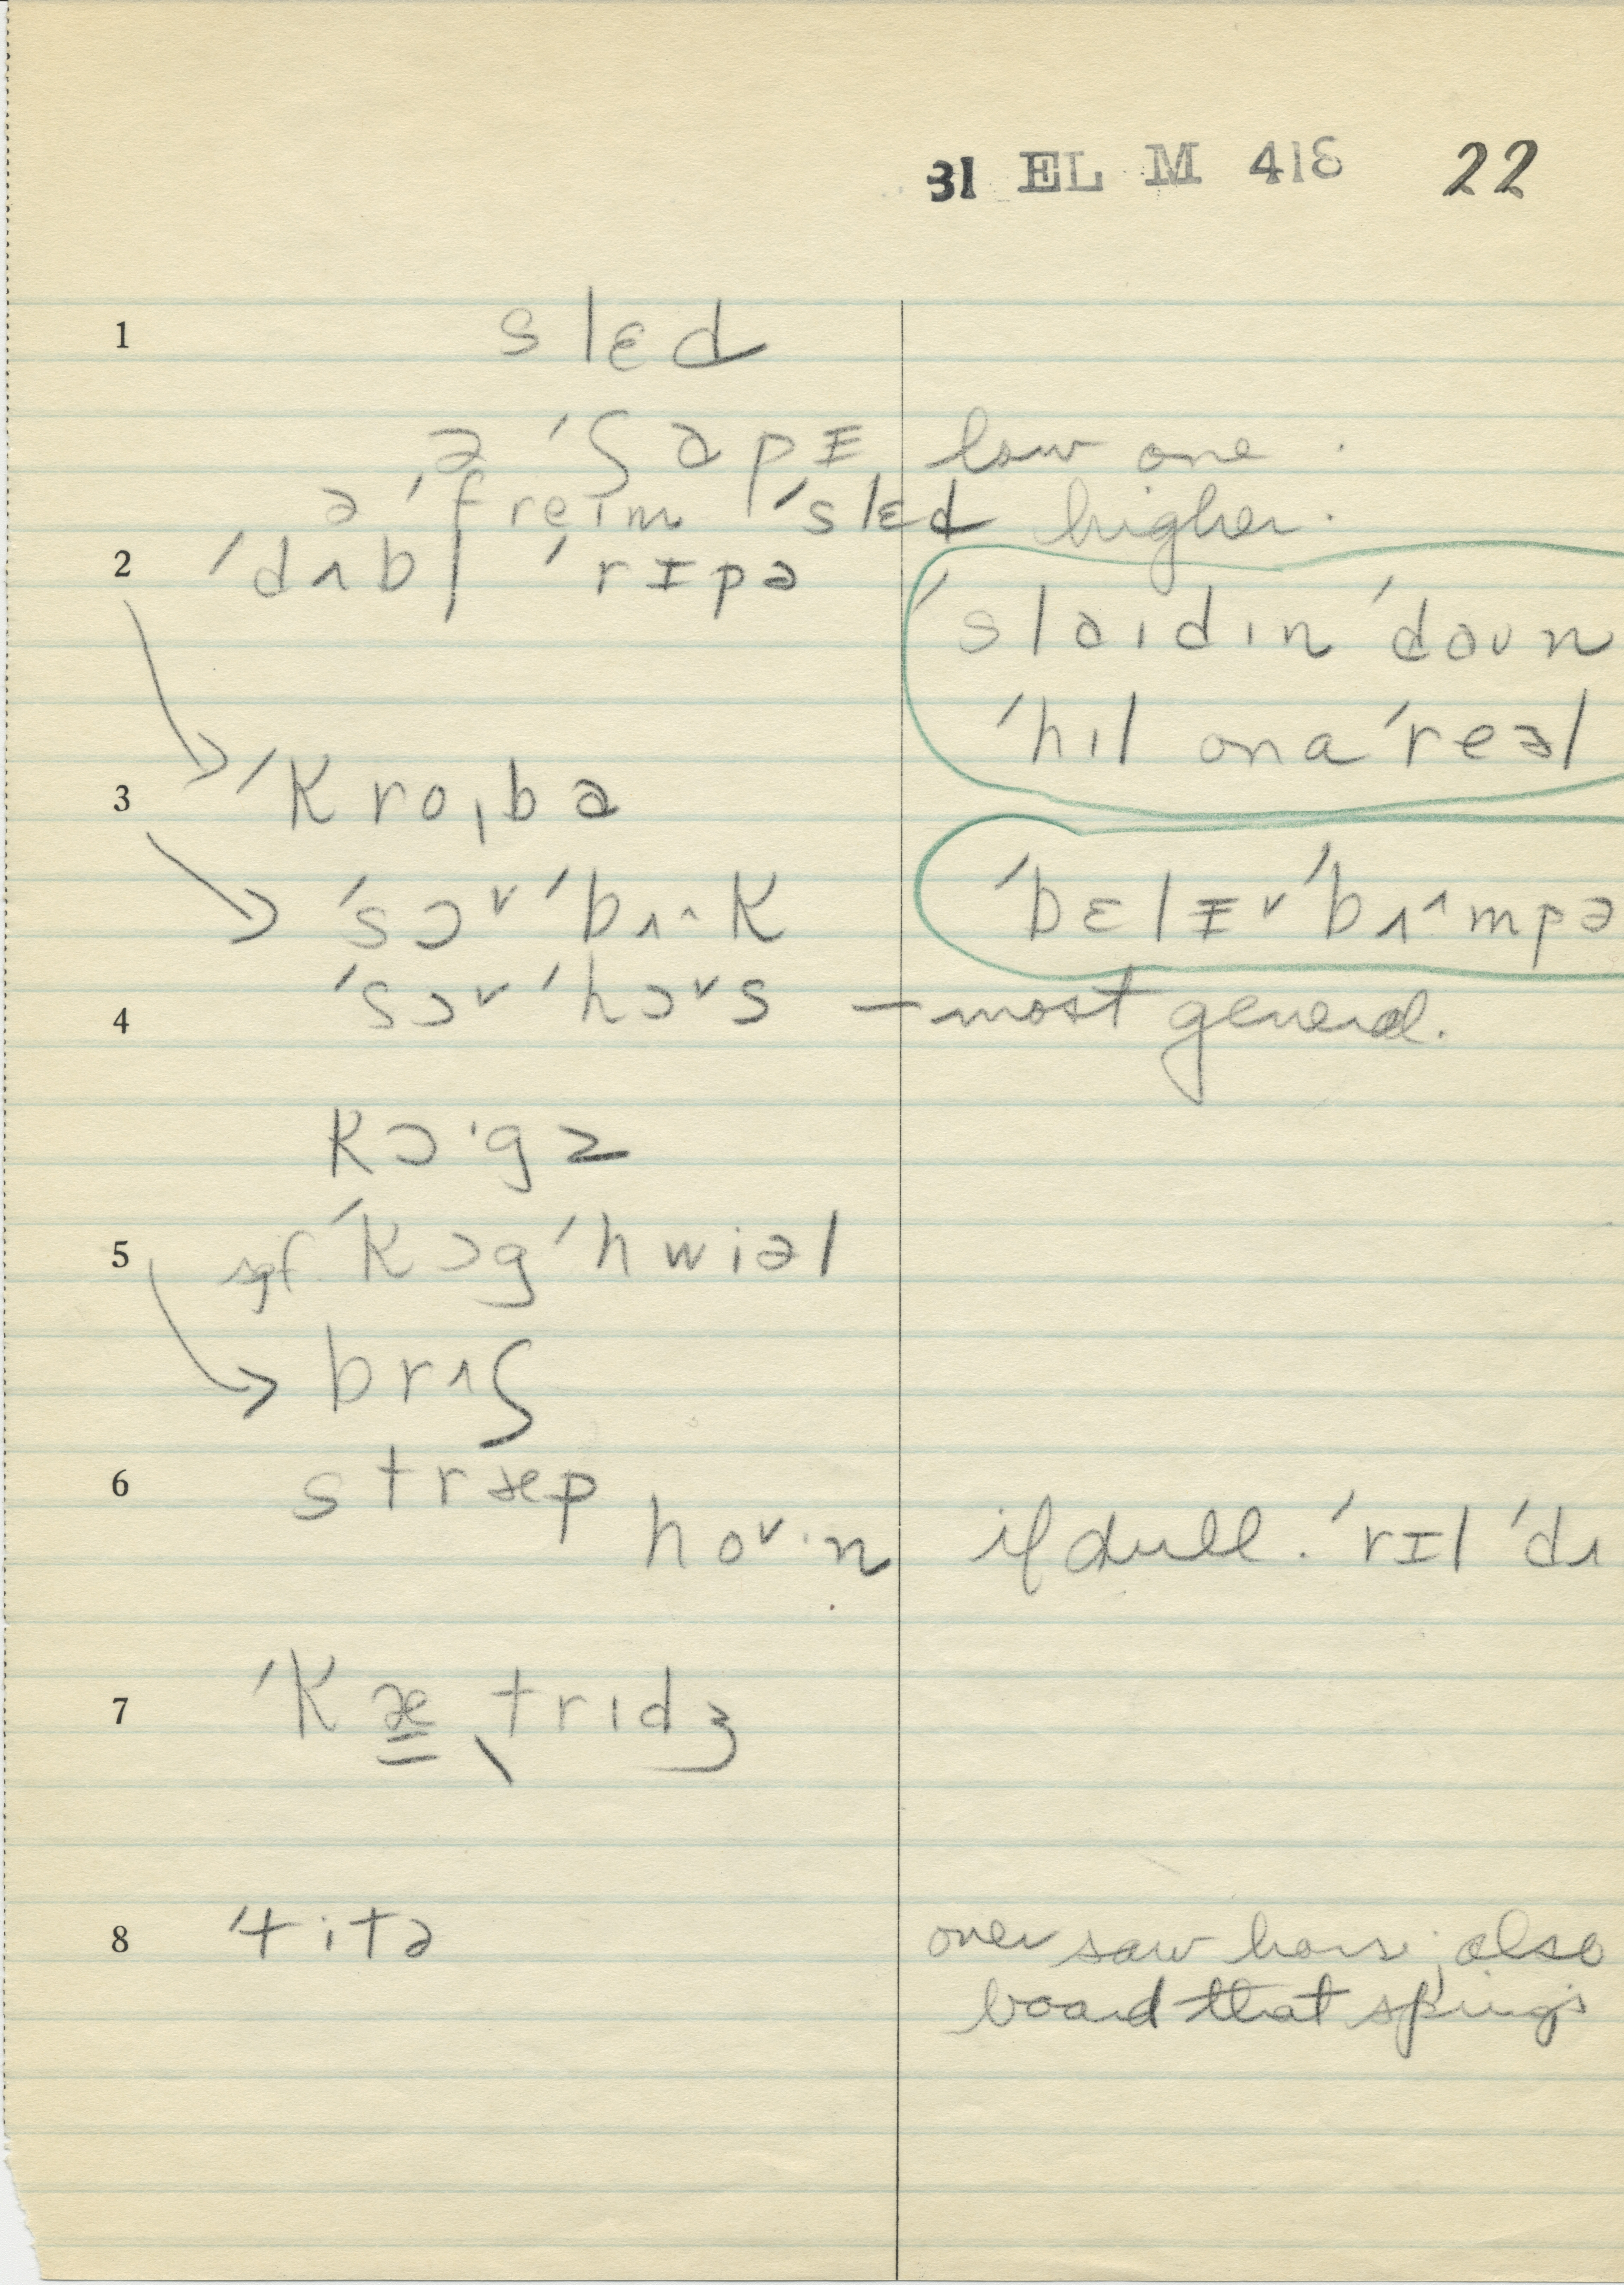 31 EL M 418 22
1 slɛd
ə ˈʃapɪ low one.
ə ˈfreɪm ˈslɛd higher.
2 ˈdʌbl̩ ˈrɪpə
ˈslaɪdɪn ˈdaʊn
ˈhɪl on a ˈreəl
3 ˈkroˌba
ˈsɔ˅ ˈbʌ^k
ˈbɛlɪ˅ ˈbʌ^mpə
4 ˈsɔ˅ ˈhɔ˅s – most general.
kɔ·gz
5 sgf. ˈkɔg ˈhwiəl
brʌʃ
6 stræp
hov·n if dull. ˈrɪl ˈdʌ
7 ˈkætrɪdʒ
8 ˈtitə over saw horse; also
board that springs